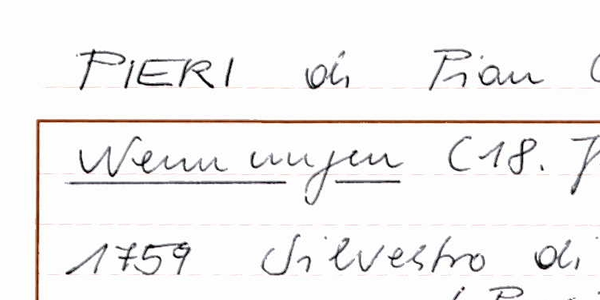 PIERI di Pian
Nennungen (18. J
1759 Silvestro di